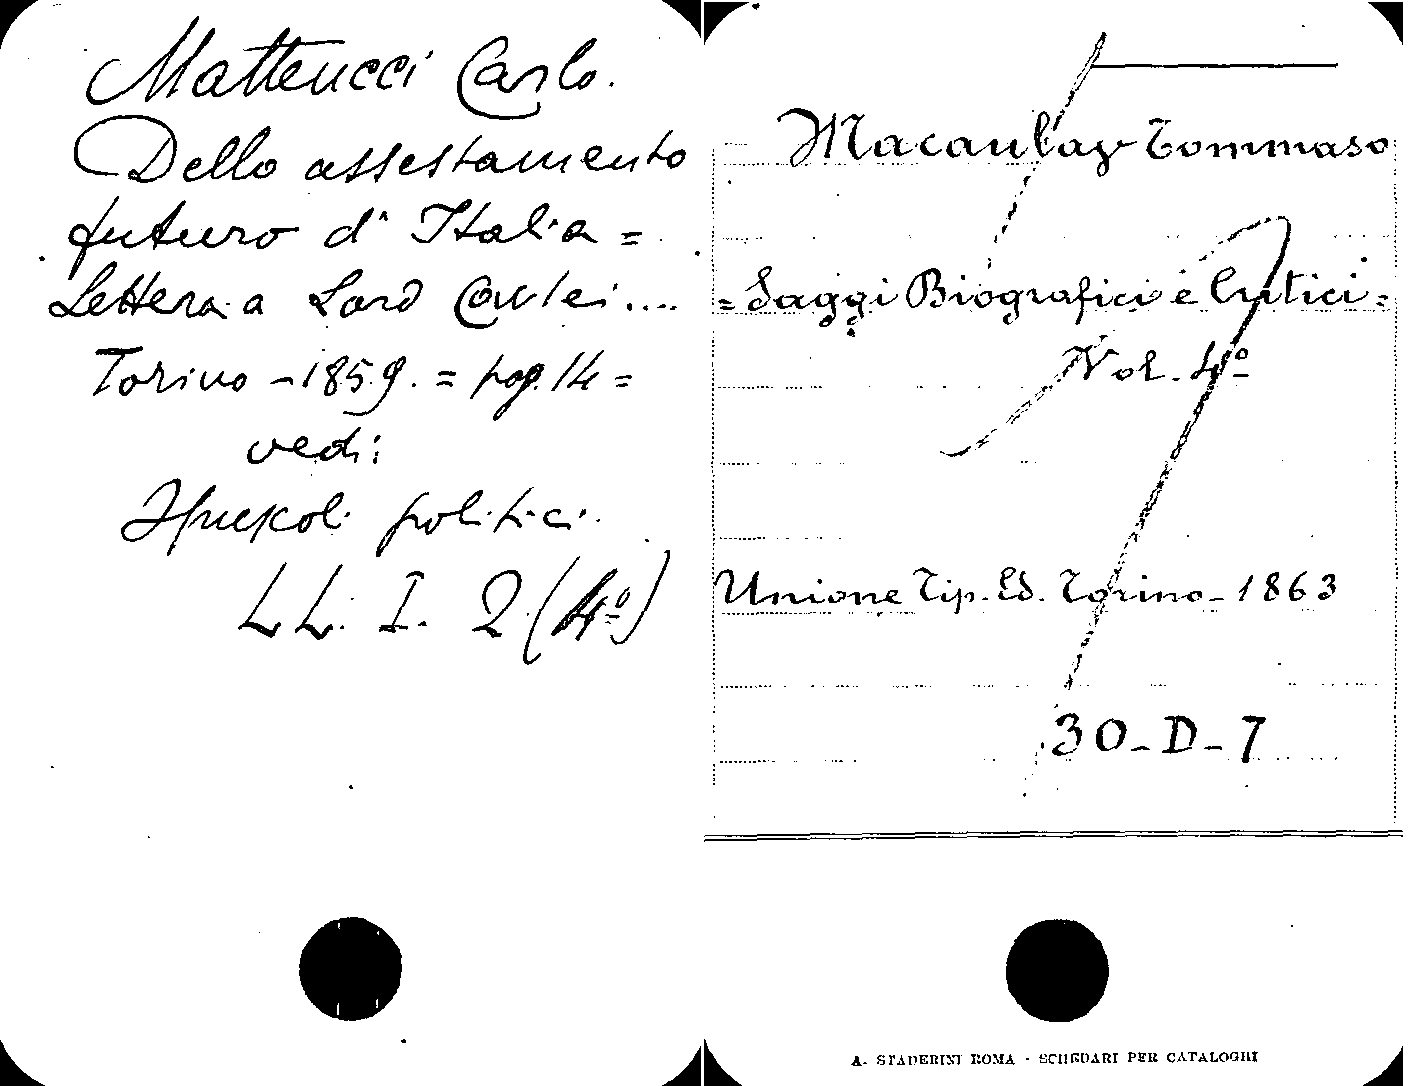 Matteucci Carlo.
Dello assestamento
futuro d' Italia =
Lettera a Lord Cowlei....
Torino - 1859. = pag. 14 =
vedi:
Opuscoli politici.
LL. I. 2 (4º)
Macaulay Tommaso
= Saggi Biografici e Critici =
Vol. 4º
Unione Tip. Ed. Torino - 1863
30 - D - 7
A. STADERINI ROMA - SCHEDARI PER CATALOGHI